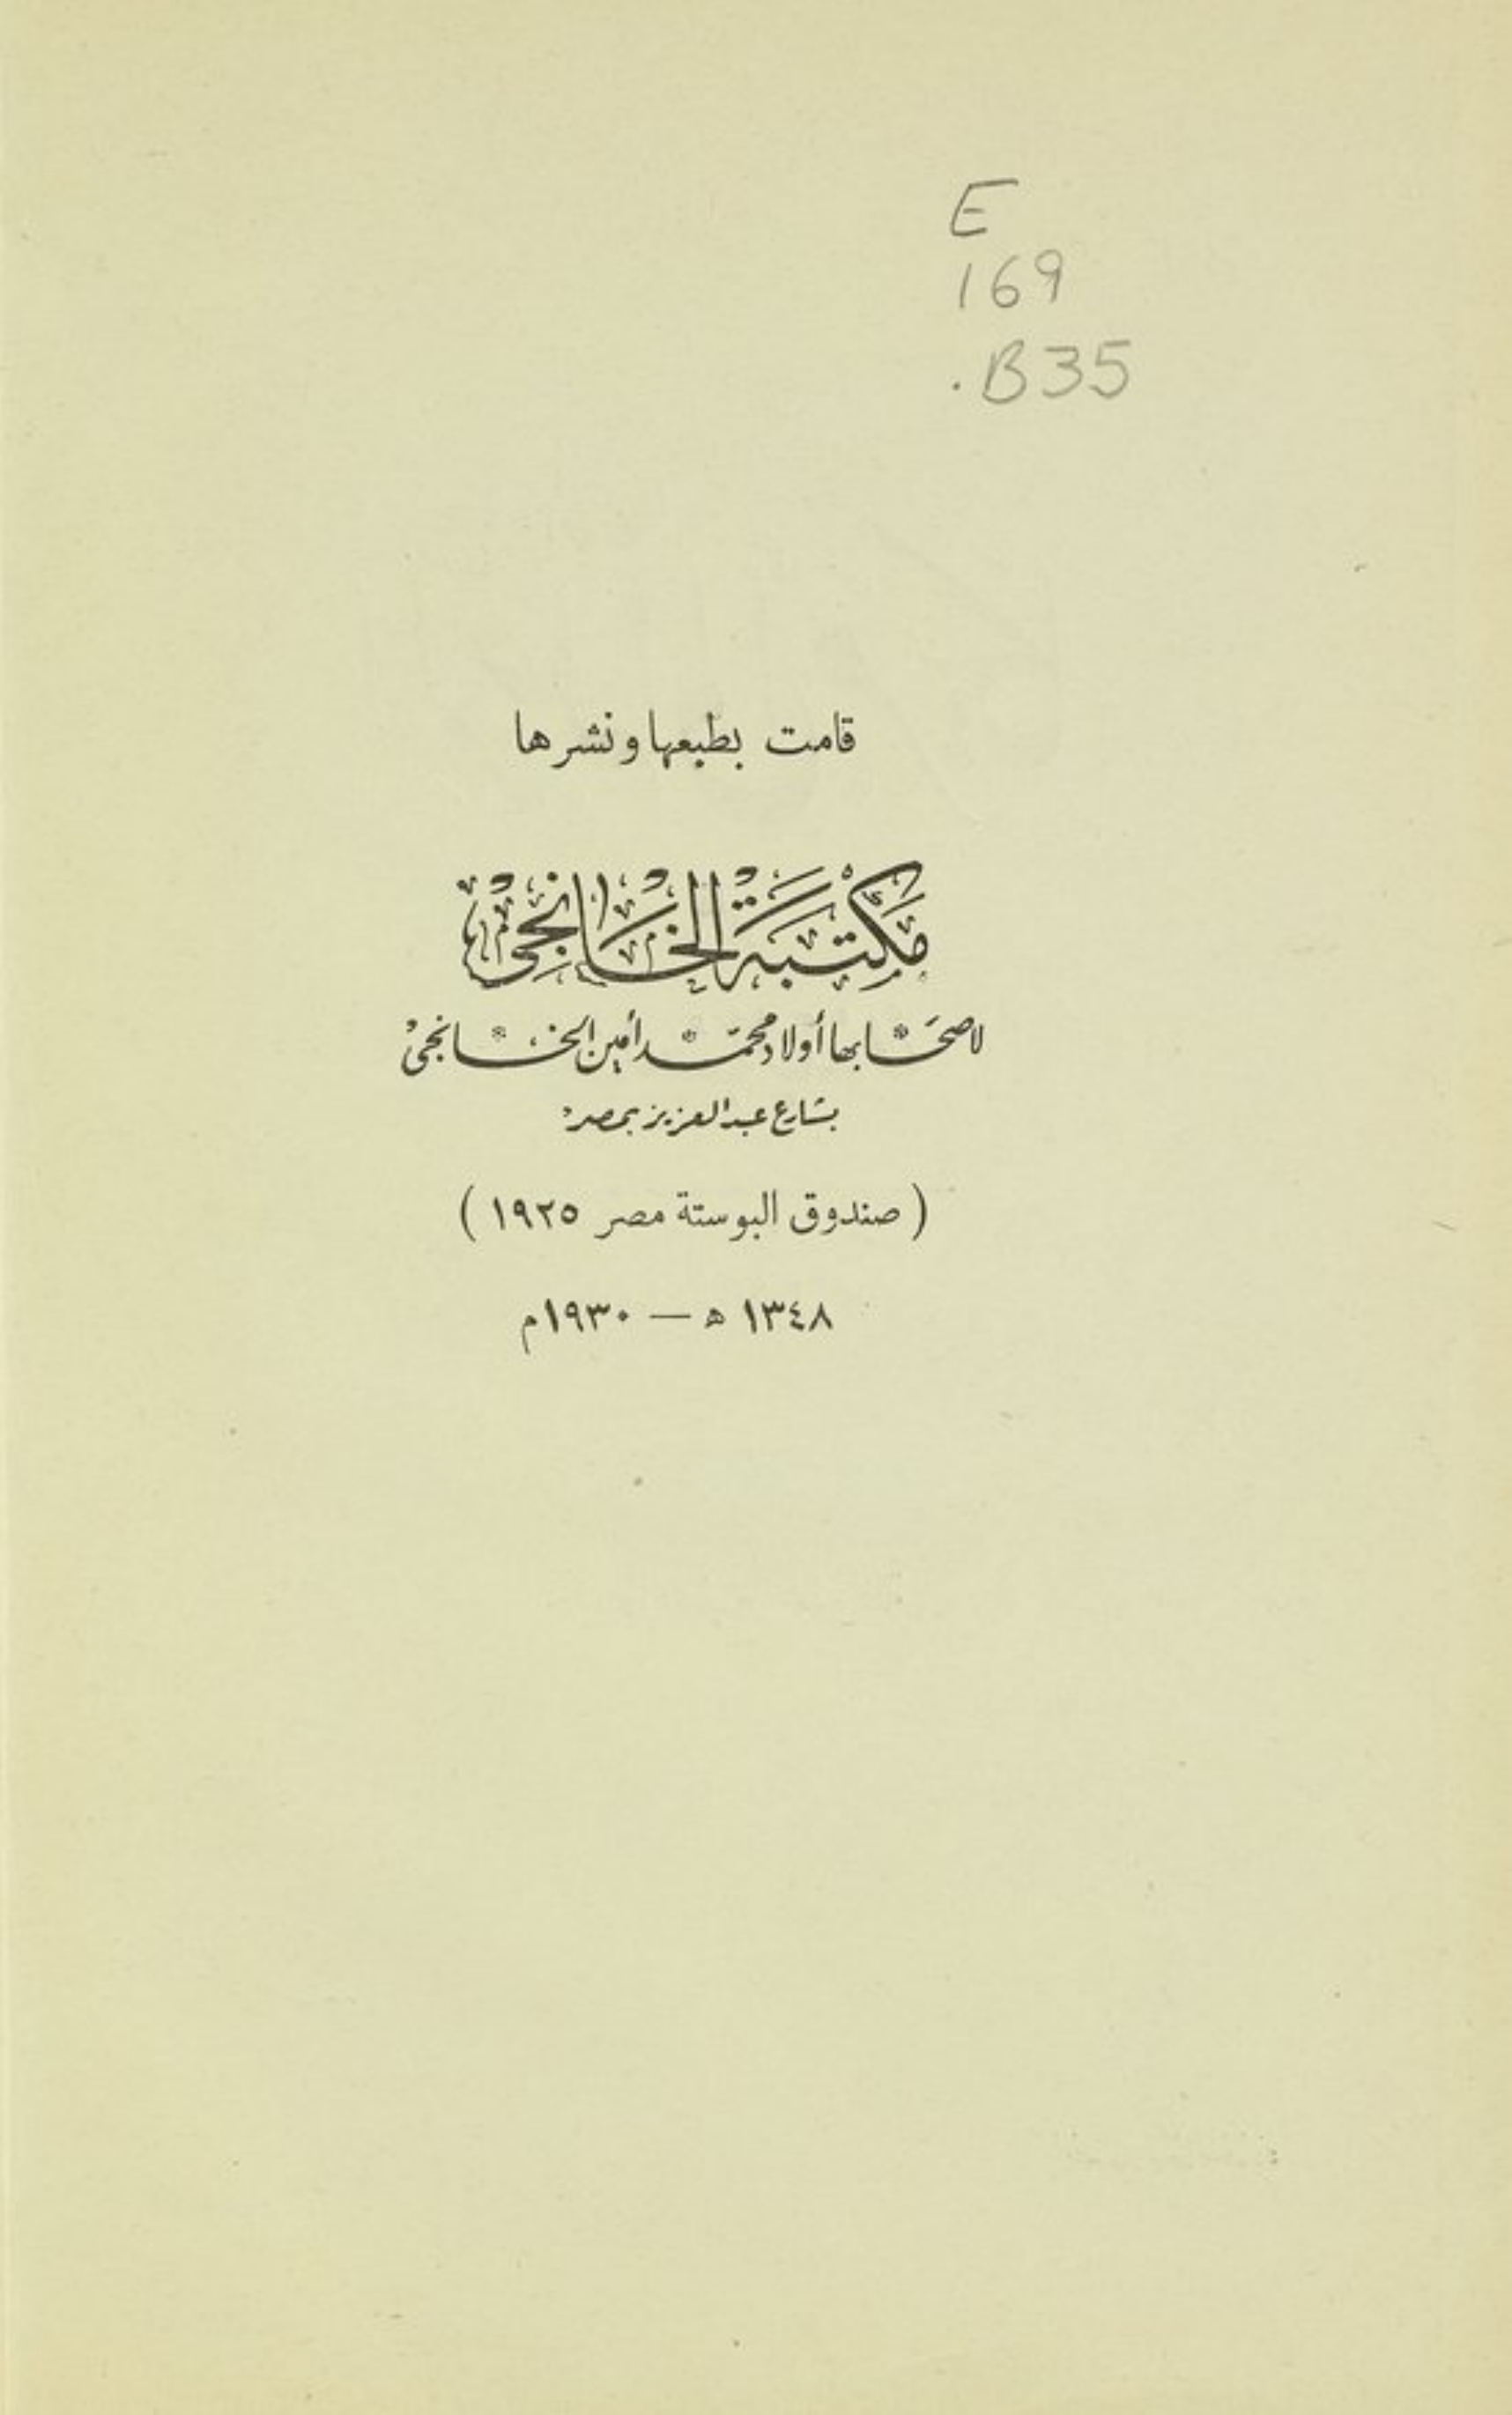 E
169
.B35
قامت بطبعها ونشرها
مَكْتَبَةُ الخَانِجِي
لاصحَابها أولاد محمّد أمين الخانجى
بشارع عبد العزيز بمصر
( صندوق البوستة مصر ١٩٢٥ )
١٣٤٨ ه — ١٩٣٠م